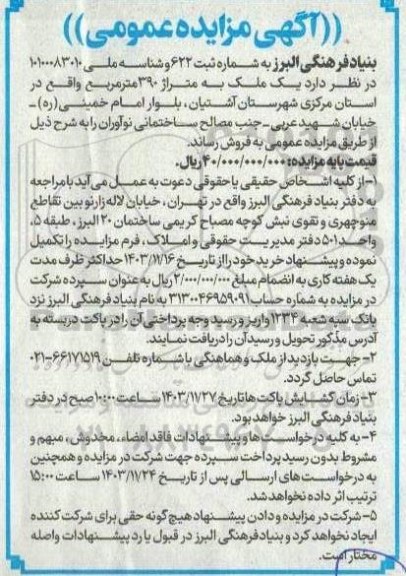 ((آگهی مزایده عمومی))
بنیاد فرهنگی البرز به شماره ثبت ۶۲۲ و شناسه ملی ۱۰۱۰۰۰۸۳۰۱۰
در نظر دارد یک ملک به متراژ ۳۹۰ مترمربع واقع در
استان مرکزی شهرستان آشتیان، بلوار امام خمینی(ره) -
خیابان شهید عربی - جنب مصالح ساختمانی نوآوران را به شرح ذیل
از طریق مزایده عمومی به فروش رساند.
قیمت پایه مزایده: ۴۰/۰۰۰/۰۰۰/۰۰۰ ریال.
۱- از کلیه اشخاص حقیقی یا حقوقی دعوت به عمل می آید با مراجعه
به دفتر بنیاد فرهنگی البرز واقع در تهران، خیابان لاله زار نو بین تقاطع
منوچهری و تقوی نبش کوچه مصباح کریمی ساختمان ۲۰ البرز، طبقه ۵،
واحد ۵۰۱ دفتر مدیریت حقوقی و املاک، فرم مزایده را تکمیل
نموده و پیشنهاد خرید خود را از تاریخ ۱۴۰۳/۱۱/۱۶ حداکثر ظرف مدت
یک هفته کاری به انضمام مبلغ ۲/۰۰۰/۰۰۰/۰۰۰ ریال به عنوان سپرده شرکت
در مزایده به شماره حساب ۳۱۳۰۰۴۶۹۵۹۰۹۱ به نام بنیاد فرهنگی البرز نزد
بانک سپه شعبه ۱۲۳۴ واریز و رسید وجه پرداختی آن را در پاکت دربسته به
آدرس مذکور تحویل و رسید آن را دریافت نمایند.
۲- جهت بازدید از ملک و هماهنگی با شماره تلفن ۶۶۱۷۱۵۱۹-۰۲۱
تماس حاصل گردد.
۳- زمان گشایش پاکت ها تاریخ ۱۴۰۳/۱۱/۲۷ ساعت ۱۰:۰۰ صبح در دفتر
بنیاد فرهنگی البرز خواهد بود.
۴- به کلیه درخواست ها و پیشنهادات فاقد امضاء، مخدوش، مبهم و
مشروط بدون رسید پرداخت سپرده جهت شرکت در مزایده و همچنین
به درخواست های ارسالی پس از تاریخ ۱۴۰۳/۱۱/۲۴ ساعت ۱۵:۰۰
ترتیب اثر داده نخواهد شد.
۵- شرکت در مزایده و دادن پیشنهاد هیچ گونه حقی برای شرکت کننده
ایجاد نخواهد کرد و بنیاد فرهنگی البرز در قبول یا رد پیشنهادات واصله
مختار است.